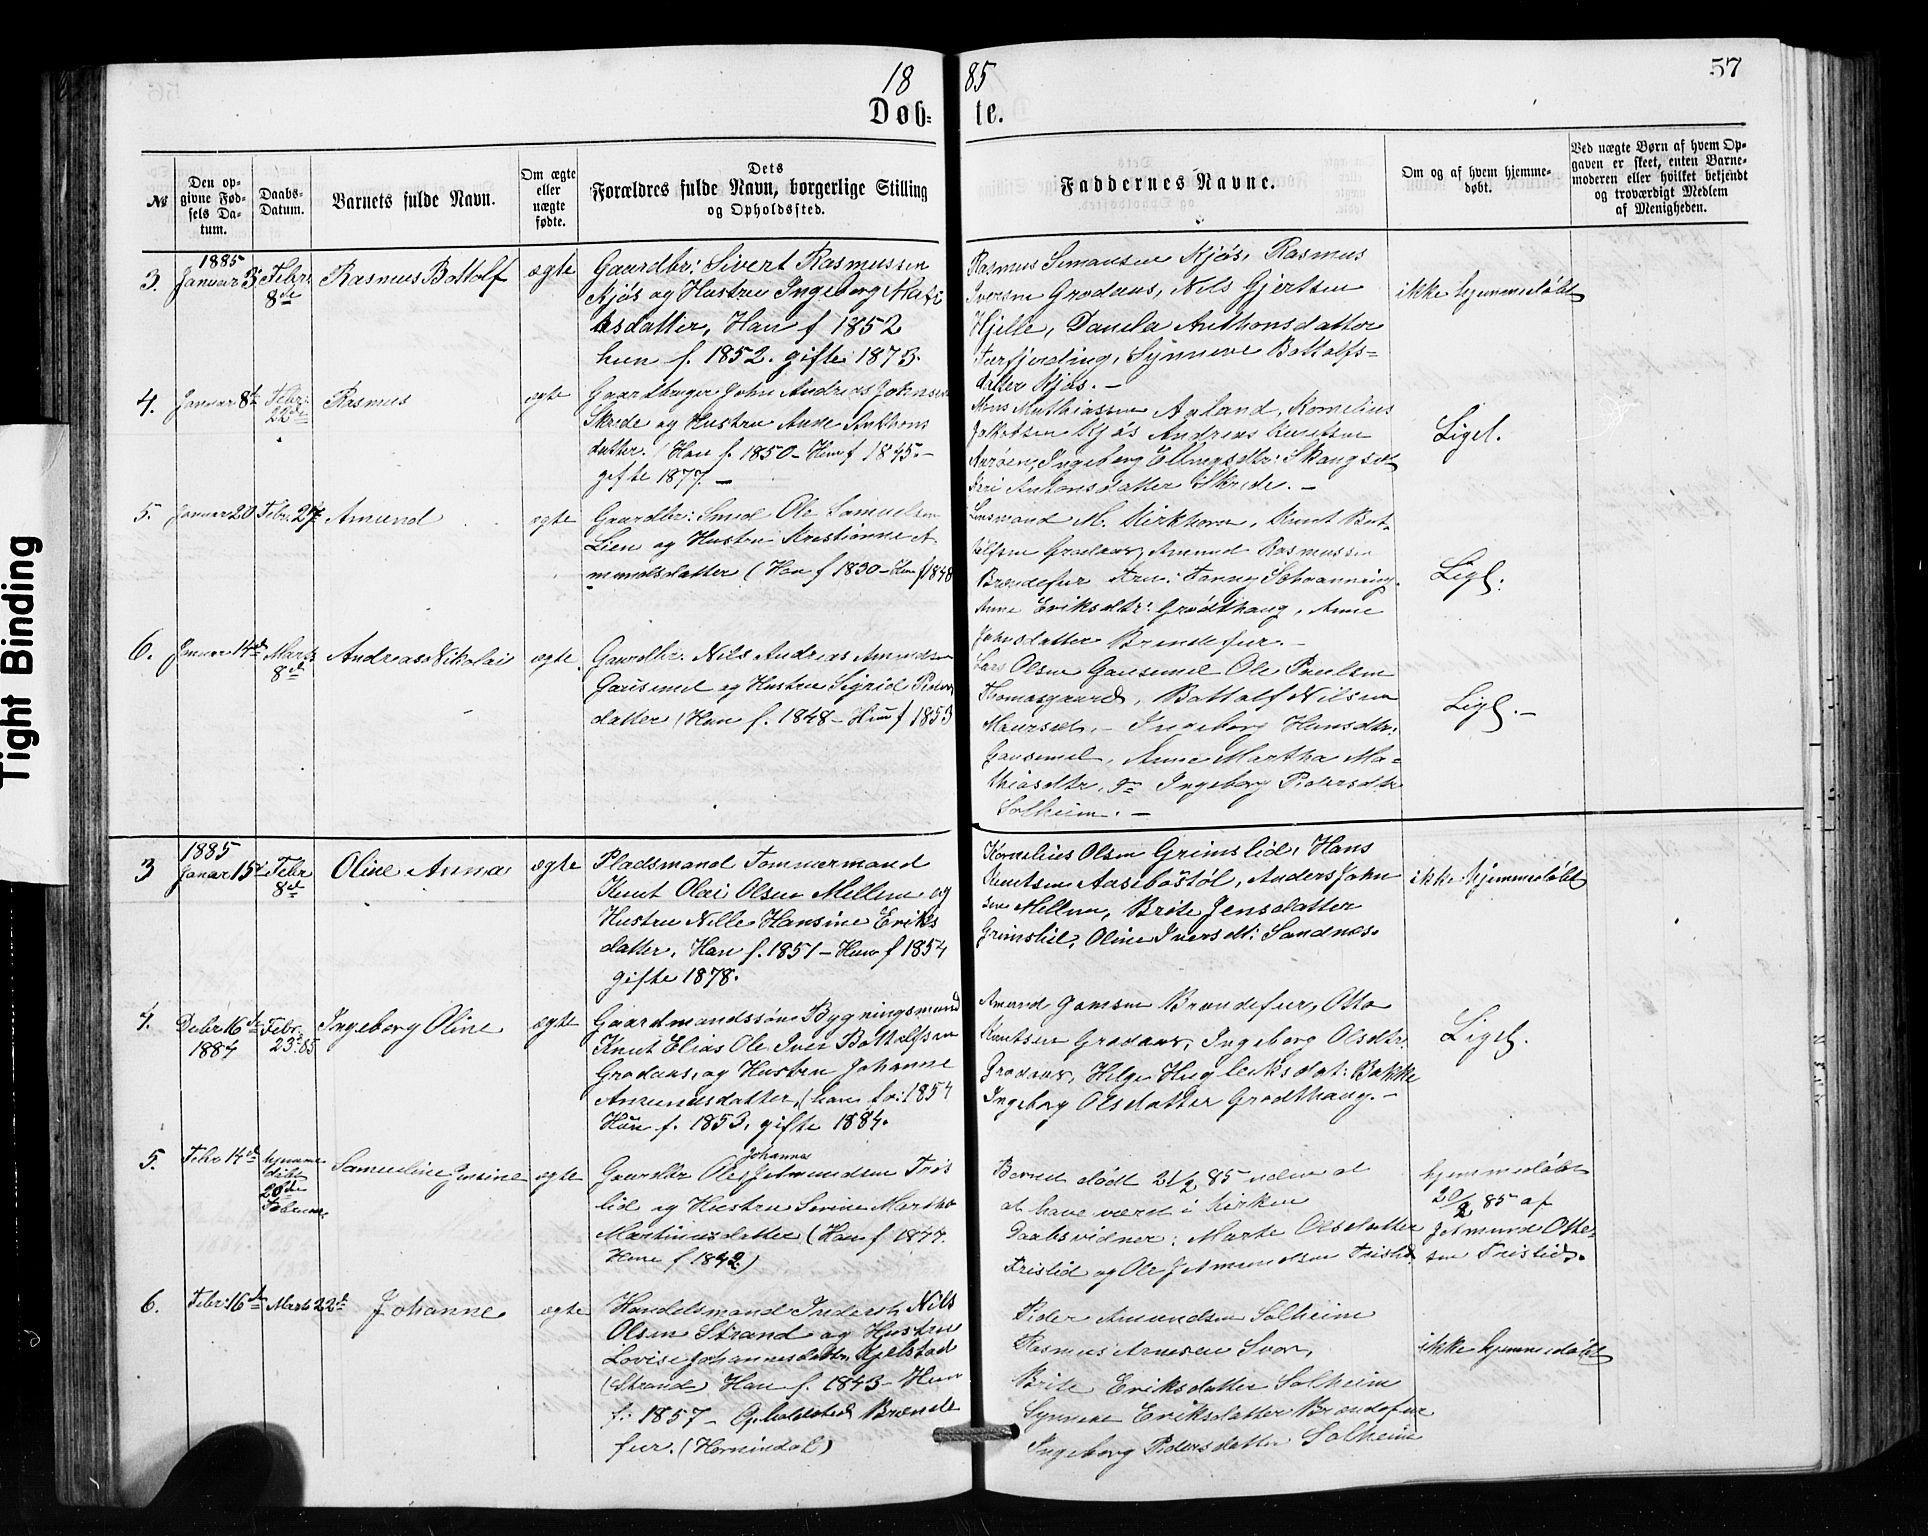 18 85
57
Döb- te.
№
Den op-
givne Fød-
sels Da-
tum.
Daabs-
Datum.
Barnets fulde Navn.
Om ægte
eller
uægte
fødte.
Dets
Forældres fulde Navn, borgerlige Stilling
og Opholdssted.
Faddernes Navne.
Om og af hvem hjemme-
døbt.
Ved uægte Børn af hvem Op-
gaven er skeet, enten Barne-
moderen eller hvilket bekjendt
og troværdigt Medlem
af Menigheden.
3.
1885
Januar 3
Febr:
8de
Rasmus Bottolf
ægte
Gaardbr: Sivert Rasmussen
Kjøs og Hustru Ingeborg Mati
asdatter, Han f 1852
hun f. 1852. gifte 1873.
Rasmus Simonsen Kjøs, Rasmus
Iversen Grodaas, Nils Gjertsen
Hjelle, Daniela Anthonsdatter
Synneve Bottolfs-
datter Kjøs. -
ikke hjemmedøbt
4.
Januar 8de
Febr:
22de
Rasmus
ægte
Gaardbruger John Andreas Johnsen
Skrede og Hustru Anne Anthons
datter. (Han f. 1850 - Hun f 1845. -
gifte 1877. -
Mons Mathiassen Aaland, Kornelius
Jakobsen Kjøs Andreas Knutsen
Ingeborg Ellingsdtr: Skaugset
Kari Antonsdatter Skrede. -
Ligel.
5.
Januar 20
Febr. 27
Amund
ægte
Gaardbr: Smed Ole Samuelsen
Lien og Hustru Kristianne A
mundsdatter (Han f 1830 - Hun f 1848
Lensmand M. Kirkhorn, Knut Bot-
tolfsen Grodaas, Amund Rasmussen
Brendefur Fru: Fanny Schvanning.
Anne Eriksdtr: Grodthaug, Anne
Johnsdatter Brendefur. -
Ligl.
6.
Januar 14de
Marts
8de
Andreas Nikolai
ægte
Gaardbr: Nils Andreas Amundsen
Gausemel og Hustru Sigrid Peders
datter (Han f. 1848 - Hun f 1853
Lars Olsen Gausemel Ole Paulsen
Thomasgaard, Bottolf Nilsen
Maurset, - Ingeborg Hansdtr:
Gausemel, Anne Martha Ma-
thiasdtr. Ingeborg Pedersdtr
Solheim. -
Ligl. -
3
1885
Januar 15de
Febr
8de
Oline Anna
ægte
Pladsmand Tømmermand
Knut Olai Olsen Mellem og
Hustru Nille Hansine Eriks
datter, Han f. 1851 - Hun f 1854
gifte 1878.
Kornelius Olsen Grimslid, Hans
Knutsen Aasebøstøl, Anders John
sen Mellem, Brite Jensdatter
Grimslid, Oline Iversdt: Sandnes.
ikke hjemmedøbt
4.
Debr 16de
1884
Febr.
23. 85
Ingeborg Oline
ægte
Gaardmandssøn Bygningsmand
Knut Elias Ole Iver Bottolfsen
Grodaas, og Hustru Johanne
Amundsdatter, (han fø: 1854
Hun f. 1853, gifte 1884.
Amund Jonsen Brendefur, Otto
Knutsen Grodaas, Ingeborg Olsdtr.
Grodaas, Helge Hugleiksdat: Bakke
Ingeborg Olsdatter Grodthaug. -
Ligel.
5.
Febr 14de
hjemme
døbt
20de
Februar
Samueline Gurine
ægte
Gaardbr Ole Johannes Jetmundsen Tris
lid og Hustru Sevine Martha
Martinusdatter (Han f 1844.
Hun f 1842.)
Barnet dødt 21/2 85 uden at
at have været i kirken
Daabsvidner: Marte Olsdatter
Trislid og Ole Jetmundsen Trislid
hjemmedøbt
20/2 85 af
Jetmund Otte-
sen Trislid.
6.
Febr: 16de
Marts 22de
Johanne
ægte
Handelsmand Inderst, Nils
Olsen Strand og Hustru
Lovise Johannesdatter Kjelstad
(Strand) Han f. 1843 - Hun
f: 1857 - Opholdsted Brende
fur. (Hornindal)
Peder Amundsen Solheim
Rasmus Arnesen Svor,
Brite Eriksdatter Solheim
Synneve Eriksdatter Brendefur
Ingeborg Pedersdatter Solheim
ikke hjemmedøbt
Tight Binding